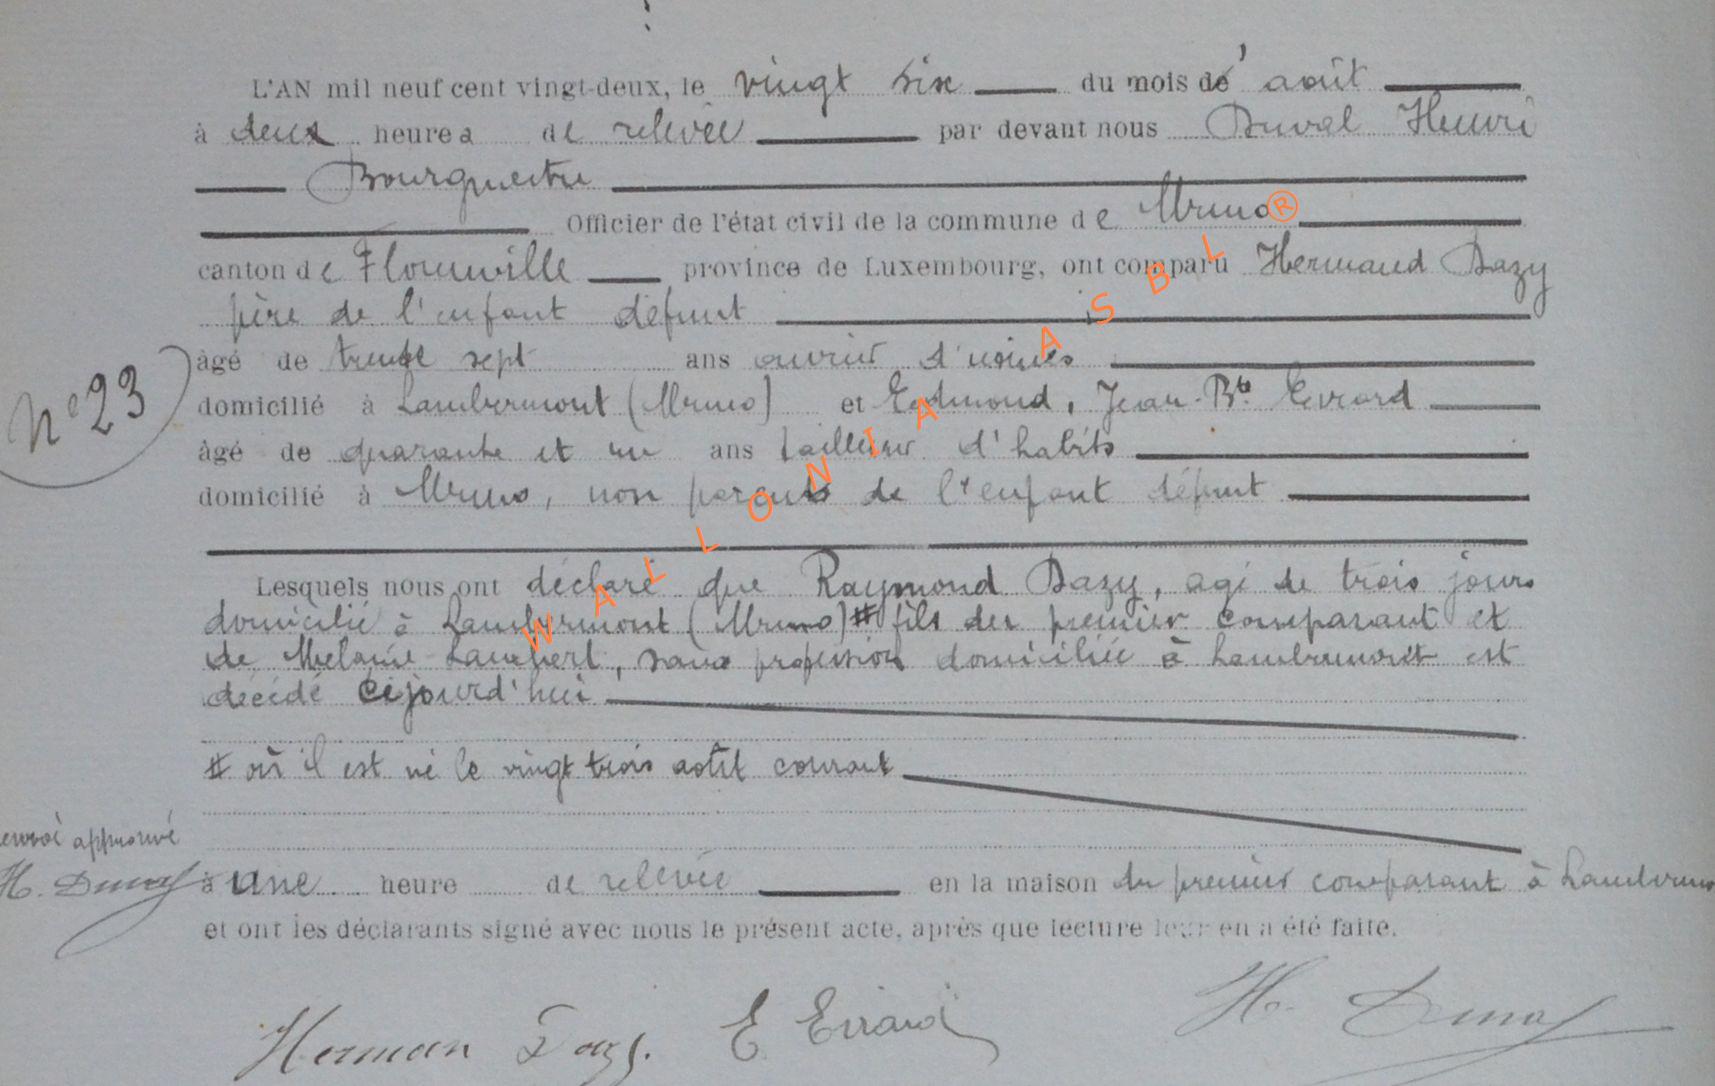 L'AN mil neuf cent vingt-deux, le vingt six du mois d' août
à deux heures de relevée par devant nous Duval Henri
Bourgmestre
Officier de l'état civil de la commune de Muno
canton de Florenville province de Luxembourg, ont comparu Hermand Dazy
père de l'enfant défunt
âgé de trente sept ans ouvrier d'usines
domicilié à Lambermont (Muno) et Edmond, Jean-Bte Evrard
N° 23
âgé de quarante et un ans tailleur d'habits
domicilié à Muno, non parents de l'enfant défunt
Lesquels nous ont déclaré que Raymond Dazy, agé de trois jours
domicilié à Lambermont (Muno) # fils du premier comparant et
de Mélanie Lambert, sans profession domiciliée à Lambermont est
décédé cejourd'hui
# où il est né le vingt trois août courant
renvoi approuvé
H. Duval
à une heure de relevée en la maison du premier comparant à Lambermont
et ont les déclarants signé avec nous le présent acte, après que lecture leur en a été faite.
Herman Dazy. E Evrard H. Duval
WALLONIA ASBL ®